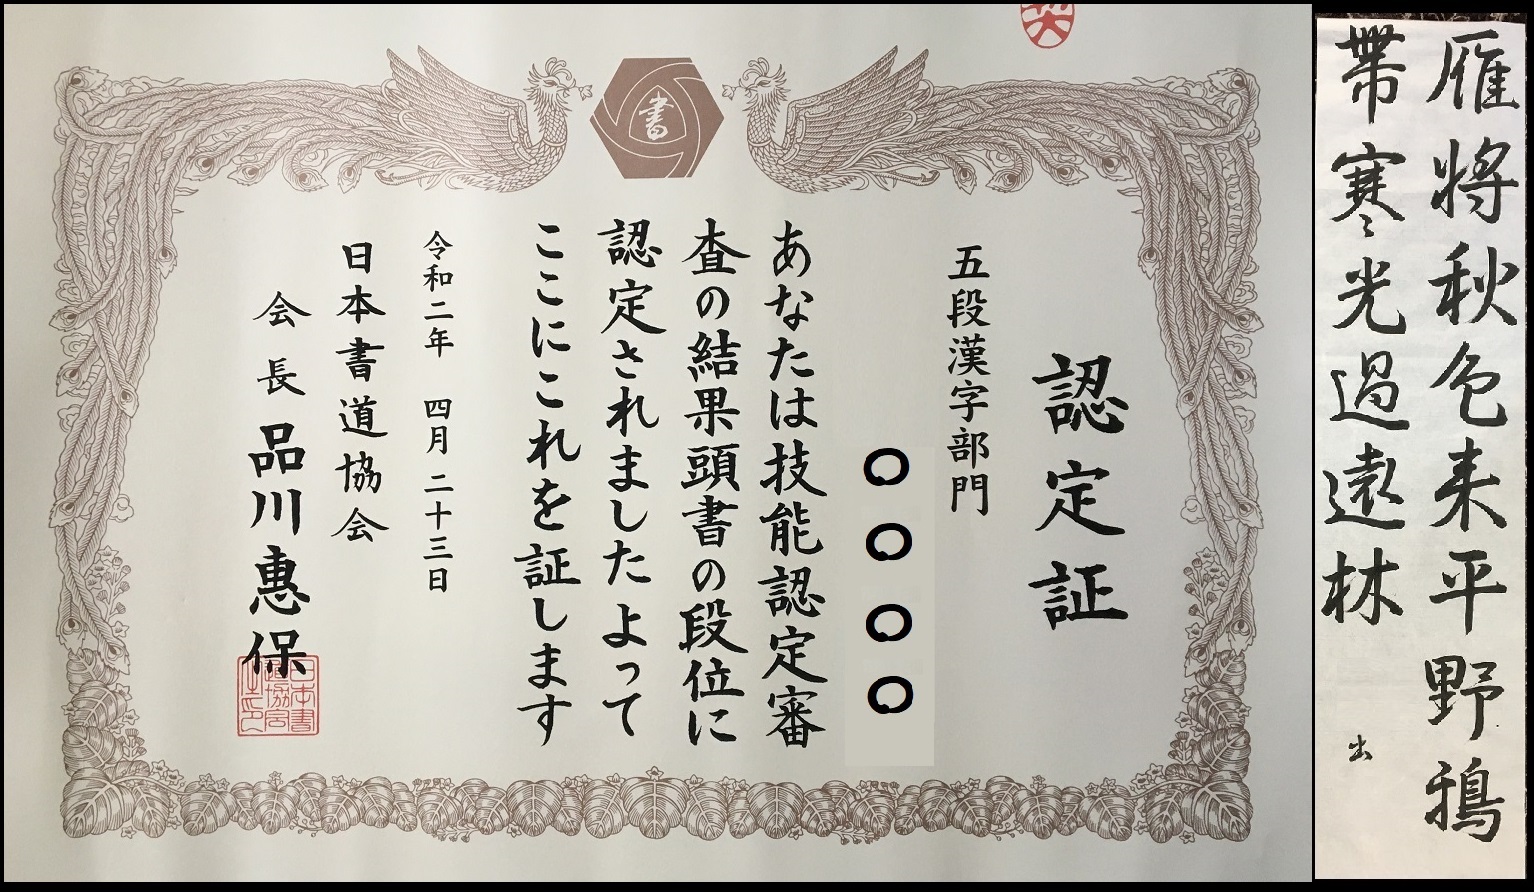 雁将秋色来平野鴉
帯寒光過遠林
出
書
認定証
五段漢字部門
〇〇〇〇
あなたは技能認定審
査の結果頭書の段位に
認定されましたよって
ここにこれを証します
令和二年 四月二十三日
日本書道協会
会長 品川惠保